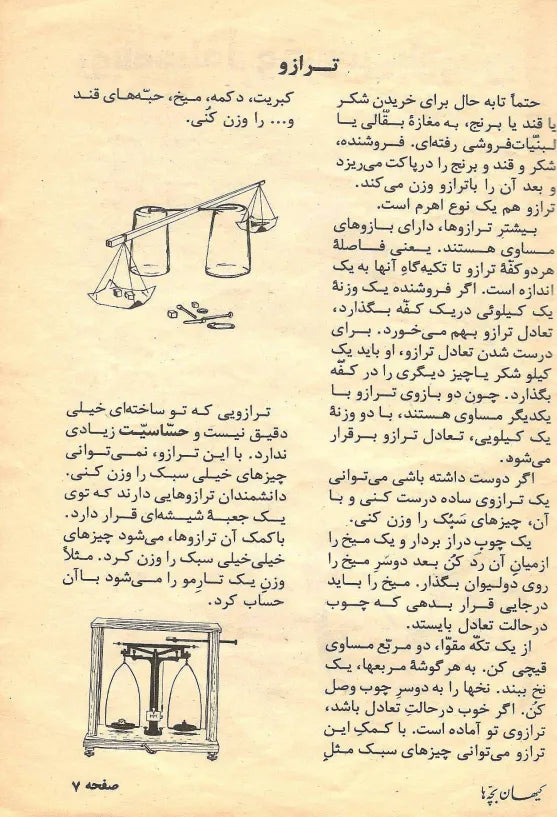 ترازو
حتماً تابه حال برای خریدن شکر
یا قند یا برنج، به مغازهٔ بقّالی یا
لبنیّات‌فروشی رفته‌ای. فروشنده،
شکر و قند و برنج را درپاکت می‌ریزد
و بعد آن را باترازو وزن می‌کند.
ترازو هم یک نوع اهرم است.
بیشترِ ترازوها، دارای بازوهای
مساوی هستند. یعنی فاصلهٔ
هردوکفّهٔ ترازو تا تکیه‌گاهِ آنها به یک
اندازه است. اگر فروشنده یک وزنهٔ
یک کیلوئی دریک کفّه بگذارد،
تعادل ترازو بهم می‌خورد. برای
درست شدن تعادل ترازو، او باید یک
کیلو شکر یاچیز دیگری را در کفّه
بگذارد. چون دو بازوی ترازو با
یکدیگر مساوی هستند، با دو وزنهٔ
یک کیلویی، تعادل ترازو برقرار
می‌شود.
اگر دوست داشته باشی می‌توانی
یک ترازوی ساده درست کنی و با
آن، چیزهای سَبُک را وزن کنی.
یک چوبِ دراز بردار و یک میخ را
ازمیانِ آن رَد کُن بعد دوسَرِ میخ را
روی دولیوان بگذار. میخ را باید
درجایی قرار بدهی که چوب
درحالت تعادل بایستد.
از یک تکّه مقوّا، دو مربّع مساوی
قیچی کن. به هر گوشهٔ مربعها، یک
نخ ببند. نخها را به دوسرِ چوب وصل
کُن. اگر خوب درحالتِ تعادل باشد،
ترازوی تو آماده است. با کمکِ این
ترازو می‌توانی چیزهای سبک مثلِ
کبریت، دکمه، میخ، حبّه‌های قند
و... را وزن کُنی.
ترازویی که تو ساخته‌ای خیلی
دقیق نیست و حسّاسیّت زیادی
ندارد. با این ترازو، نمی‌توانی
چیزهای خیلی سبک را وزن کنی.
دانشمندان ترازوهایی دارند که توی
یک جعبهٔ شیشه‌ای قرار دارد.
باکمک آن ترازوها، می‌شود چیزهای
خیلی‌خیلی سبک را وزن کرد. مثلاً
وزنِ یک تارِمو را می‌شود باآن
حساب کرد.
کیهان بچّه‌ها
صفحه ۷